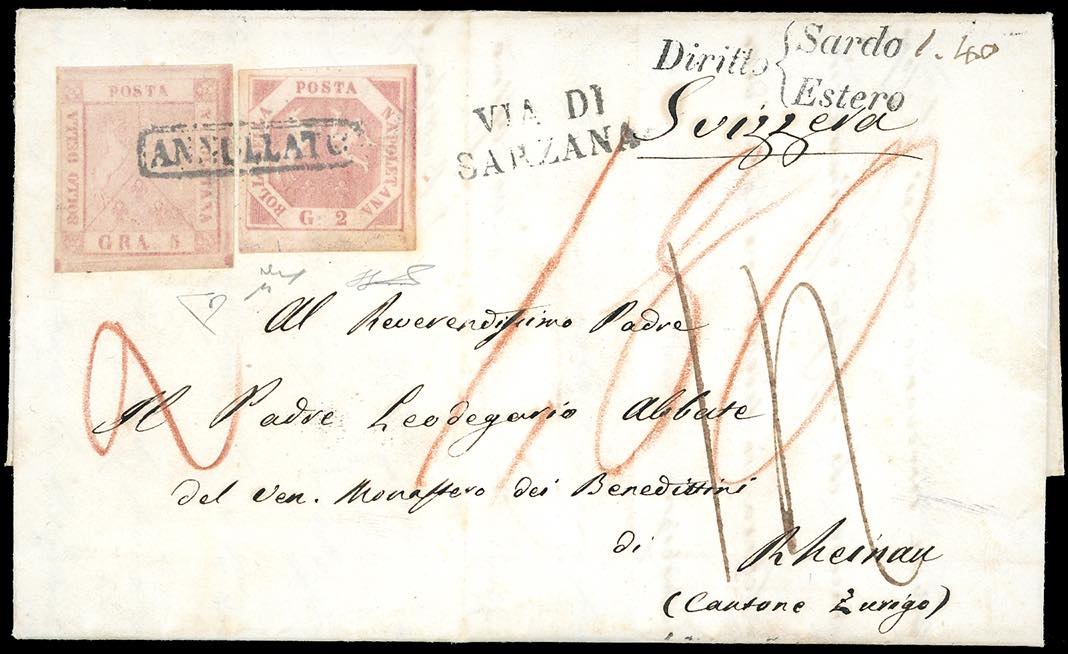 Diritto { Sardo 1.40
Estero
VIA DI
SARZANA
Svizzera
POSTA
BOLLO DELLA
GRA. 5
POSTA
NAPOLETANA
G. 2
ANNULLATO
180
Al Reverendissimo Padre
Il Padre Leodegario Abbate
del Ven. Monastero dei Benedittini
di Rheinau
(Cantone Zurigo)